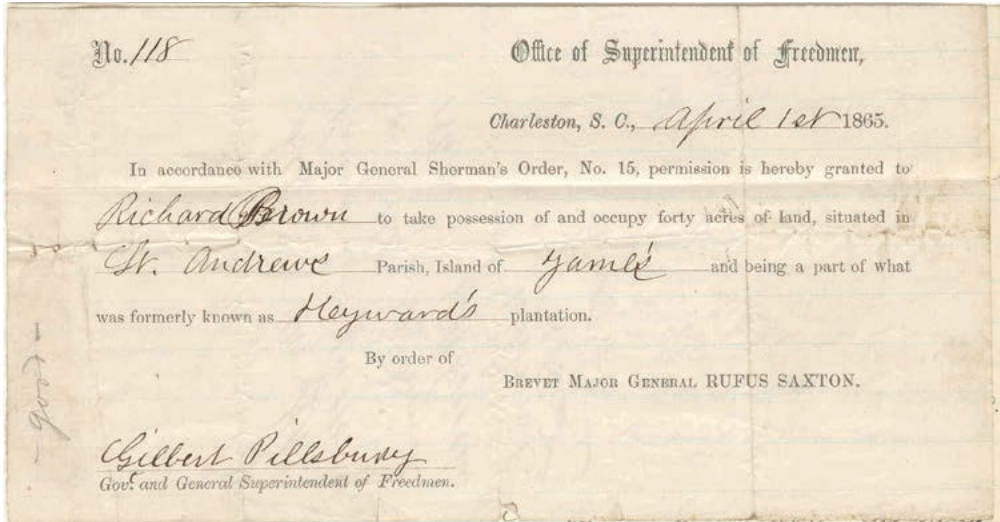 No. 118
Office of Superintendent of Freedmen,
Charleston, S. C., April 1st 1865.
In accordance with Major General Sherman's Order, No. 15, permission is hereby granted to
Richard Brown to take possession of and occupy forty acres of land, situated in
St. Andrews Parish, Island of James and being a part of what
was formerly known as Heyward's plantation.
By order of
BREVET MAJOR GENERAL RUFUS SAXTON.
Gilbert Pillsbury
Gov't and General Superintendent of Freedmen.